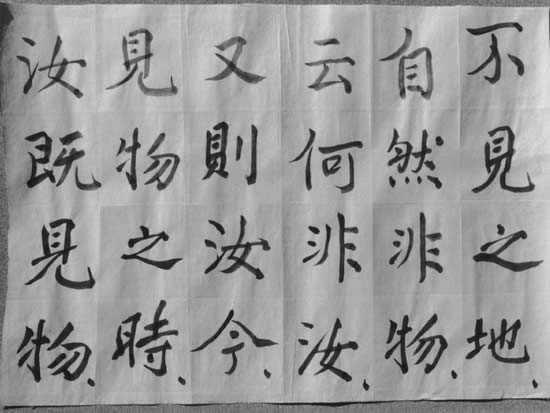 不見之地、
自然非物、
云何非汝、
又則汝今、
見物之時、
汝既見物、